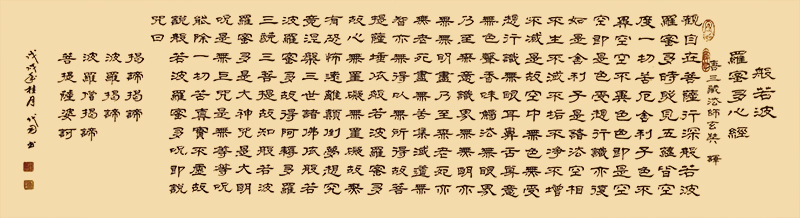 般若波
羅蜜多心經
唐三藏法師玄奘譯
觀自在菩薩行深般若波
羅蜜多時照見五蘊皆空
度一切苦厄舍利子色不
異空空不異色色即是空
空即是色受想行識亦復
如是舍利子是諸法空相
不生不滅不垢不淨不增
不減是故空中無色無受
想行識無眼耳鼻舌身意
無色聲香味觸法無眼界
乃至無意識界無無明亦
無無明盡乃至無老死亦
無老死盡無苦集滅道無
智亦無得以無所得故菩
提薩埵依般若波羅蜜多
故心無罣礙無罣礙故無
有恐怖遠離顛倒夢想究
竟涅槃三世諸佛依般若
波羅蜜多故得阿耨多羅
三藐三菩提故知般若波
羅蜜多是大神呪是大明
呪是無上呪是無等等呪
能除一切苦真實不虛故
說般若波羅蜜多呪即說
呪曰
揭諦揭諦
波羅揭諦
波羅僧揭諦
菩提薩婆訶
戊戌年桂月 書